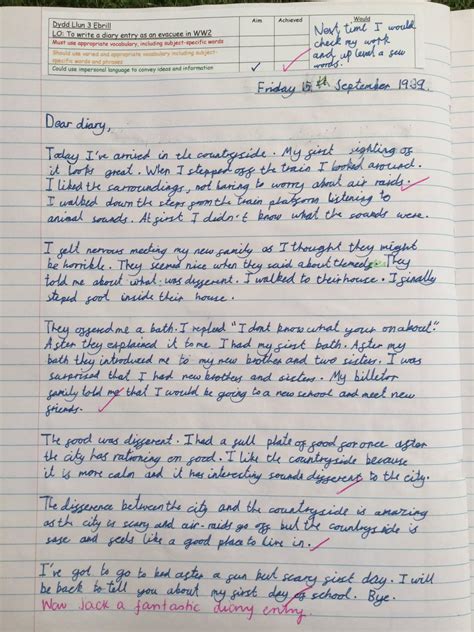 Dydd Llun 3 Ebrill
LO: To write a diary entry as an evacuee in WW2
Must use appropriate vocabulary, including subject-specific words
Should use varied and appropriate vocabulary, including subject-specific words and phrases
Could use impersonal language to convey ideas and information
Aim
Achieved
Would
Next time I would
check my work
and up level a few
words.
Friday 15th September 1939.
Dear diary,
Today I've arrived in the countryside. My first sighting of
it looks great. When I stepped off the train I looked around.
I liked the surroundings, not having to worry about air raids.
I walked down the steps from the train platform listening to
animal sounds. At first I didn't know what the sounds were.
I felt nervous meeting my new family as I thought they might
be horrible. They seemed nice when they said about themeds. They
told me about what was different. I walked to their house. I finally
steped foot inside their house.
They offered me a bath. I replied "I dont know what your on about."
After they explained it to me I had my first bath. After my
bath they introduced me to my new brother and two sisters. I was
surprised that I had new brothers and sisters. My billetor
family told me that I would be going to a new school and meet new
friends.
The food was different. I had a full plate of food for once after
the city has rationing on food. I like the countryside because
it is more calm and it has interesting sounds different to the city.
The difference between the city and the countryside is amazing
as the city is scary and air-raids go off but the countryside is
safe and feels like a good place to live in.
I've got to go to bed after a fun but scary first day. I will
be back to tell you about my first day of school. Bye.
Wow Jack a fantastic diary entry.